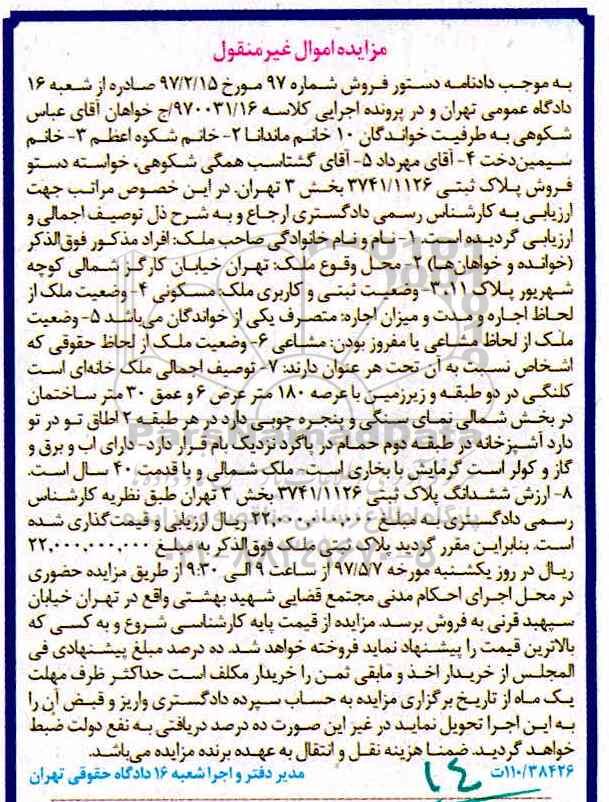 مزایده اموال غیر منقول
به موجب دادنامه دستور فروش شماره ۹۷ مورخ ۹۷/۲/۱۵ صادره از شعبه ۱۶
دادگاه عمومی تهران و در پرونده اجرایی کلاسه ۹۷۰۰۳۱/۱۶/ج خواهان آقای عباس
شکوهی به طرفیت خواندگان ۱۰ خانم ماندانا ۲- خانم شکوه اعظم ۳- خانم
سیمین‌دخت ۴- آقای مهرداد ۵- آقای گشتاسب همگی شکوهی، خواسته دستو
فروش پلاک ثبتی ۳۷۴۱/۱۱۲۶ بخش ۳ تهران. در این خصوص مراتب جهت
ارزیابی به کارشناس رسمی دادگستری ارجاع و به شرح ذل توصیف اجمالی و
ارزیابی گردیده است. ۱- نام و نام خانوادگی صاحب ملک: افراد مذکور فوق‌الذکر
(خوانده و خواهان‌ها) ۲- محل وقوع ملک: تهران خیابان کارگر شمالی کوچه
شهریور پلاک ۱۱ ۳- وضعیت ثبتی و کاربری ملک: مسکونی ۴- وضعیت ملک از
لحاظ اجاره و مدت و میزان اجاره: متصرف یکی از خواندگان می‌باشد ۵- وضعیت
ملک از لحاظ مشاعی یا مفروز بودن: مشاعی ۶- وضعیت ملک از لحاظ حقوقی که
اشخاص نسبت به آن تحت هر عنوان دارند: ۷- توصیف اجمالی ملک خانه‌ای است
کلنگی در دو طبقه و زیرزمین با عرصه ۱۸۰ متر عرض ۶ و عمق ۳۰ متر ساختمان
در بخش شمالی نمای سنگی و پنجره چوبی دارد در هر طبقه ۲ اطاق تو در تو
دارد آشپزخانه در طبقه دوم حمام در پاگرد نزدیک بام قرار دارد- دارای اب و برق و
گاز و کولر است گرمایش با بخاری است- ملک شمالی و با قدمت ۴۰ سال است.
۸- ارزش ششدانگ پلاک ثبتی ۳۷۴۱/۱۱۲۶ بخش ۳ تهران طبق نظریه کارشناس
رسمی دادگستری به مبلغ ۲۲,۰۰۰,۰۰۰,۰۰۰ ریال ارزیابی و قیمت‌گذاری شده
است. بنابراین مقرر گردید پلاک ثبتی ملک فوق‌الذکر به مبلغ ۲۲,۰۰۰,۰۰۰,۰۰۰
ریال در روز یکشنبه مورخه ۹۷/۵/۷ از ساعت ۹ الی ۹:۳۰ از طریق مزایده حضوری
در محل اجرای احکام مدنی مجتمع قضایی شهید بهشتی واقع در تهران خیابان
سپهبد قرنی به فروش برسد. مزایده از قیمت پایه کارشناسی شروع و به کسی که
بالاترین قیمت را پیشنهاد نماید فروخته خواهد شد. ده درصد مبلغ پیشنهادی فی
المجلس از خریدار اخذ و مابقی ثمن را خریدار مکلف است حداکثر ظرف مهلت
یک ماه از تاریخ برگزاری مزایده به حساب سپرده دادگستری واریز و قبض آن را
به این اجرا تحویل نمایند در غیر این صورت ده درصد دریافتی به نفع دولت ضبط
خواهد گردید. ضمنا هزینه نقل و انتقال به عهده برنده مزایده می‌باشد.
۱۱۰/۳۸۴۲۶ت مدیر دفتر و اجرا شعبه ۱۶ دادگاه حقوقی تهران
۱۴
ParsNamadData